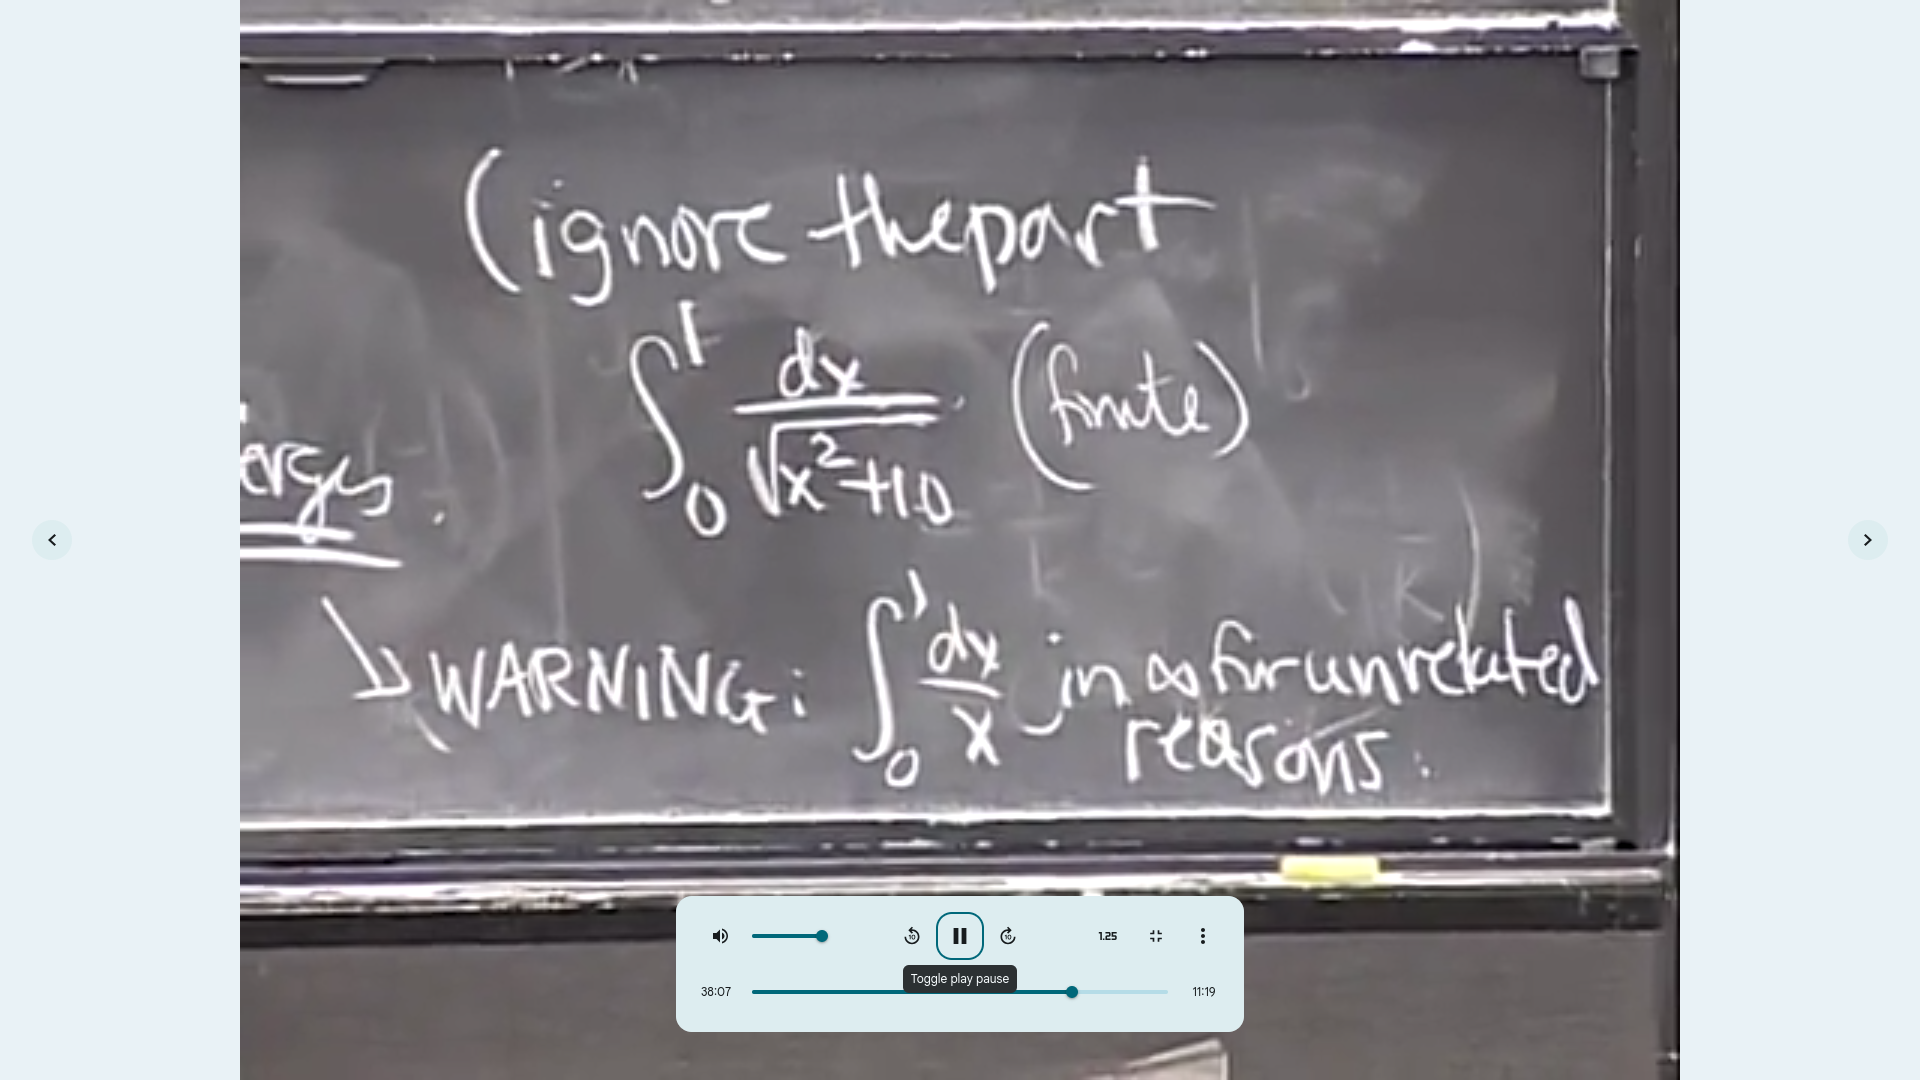 (ignore the part
∫₀¹ dx/√(x²+10) (finite)
erges.
WARNING: ∫₀¹ dx/x in ∞ for unrelated
reasons.
1.25
Toggle play pause
38:07
11:19